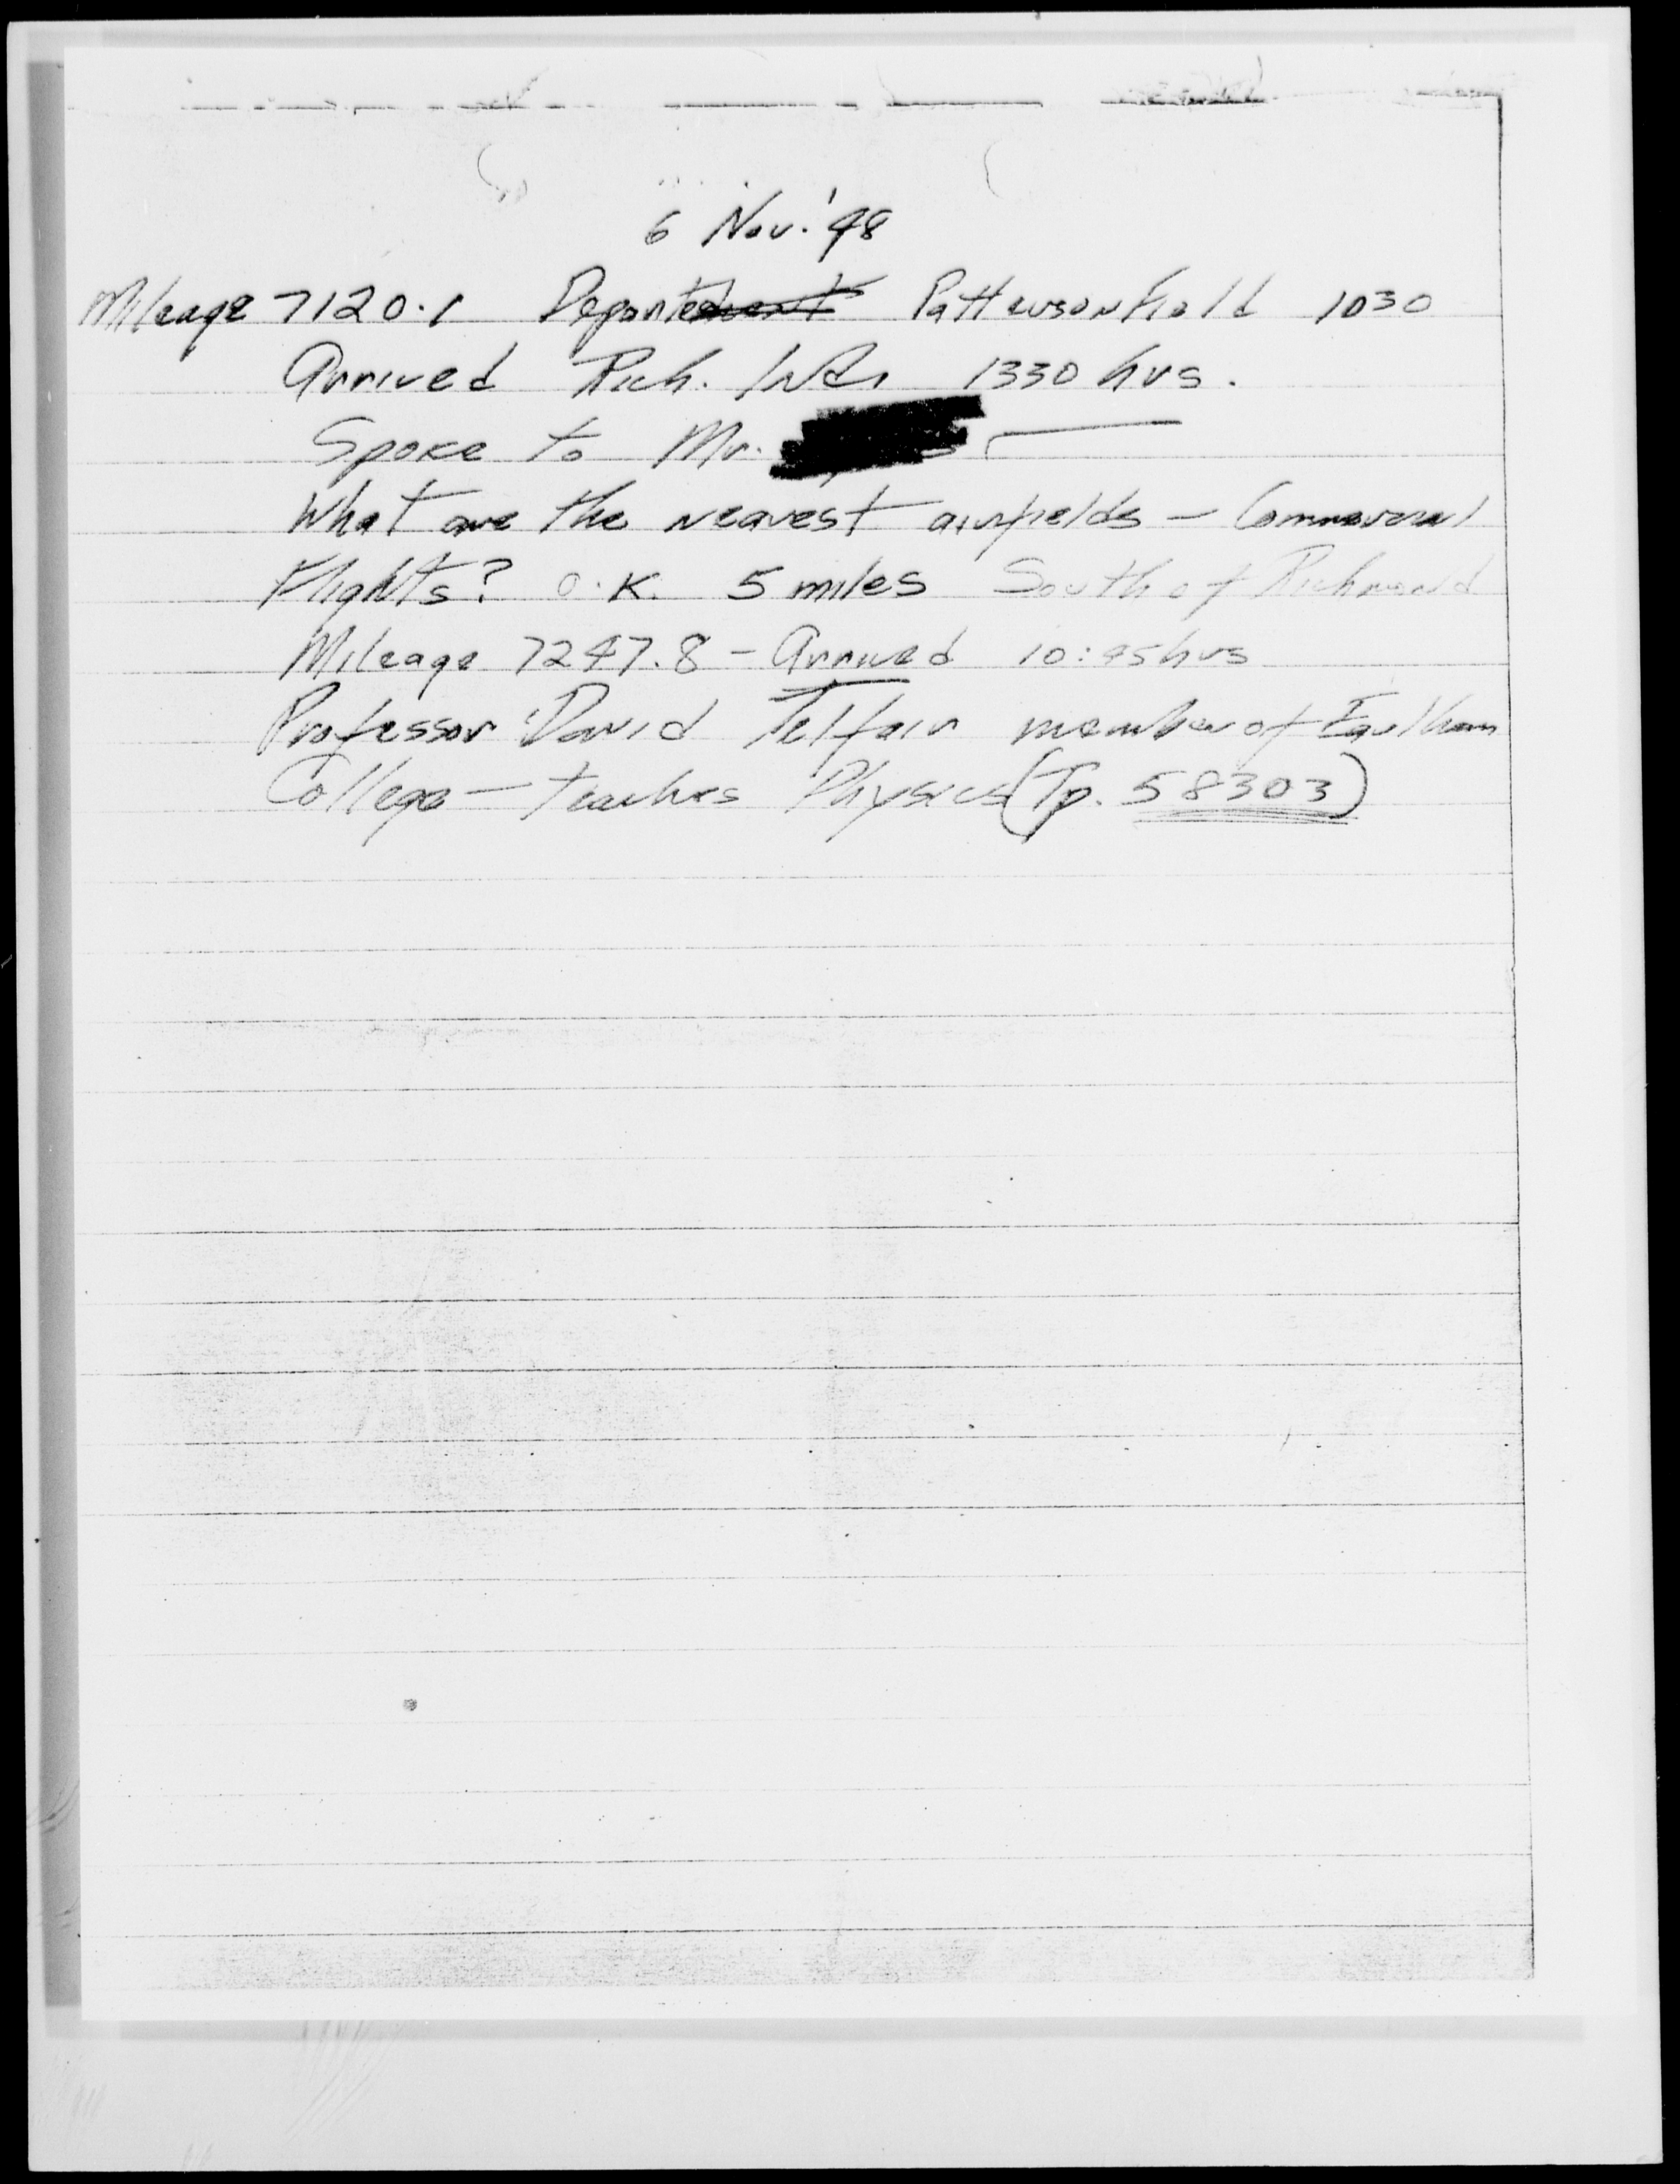 6 Nov. '48
Mileage 7120.1 Departed Patterson field 1030
Arrived Rich. Inda 1330 hrs.
Spoke to Mr.
What are the nearest airfields - Commercial
Flights? O.K. 5 miles South of Richmond
Mileage 7247.8 - Arrived 10:45 hrs
Professor David Telfair member of Earlham
College - teaches Physics (Tp. 58303)